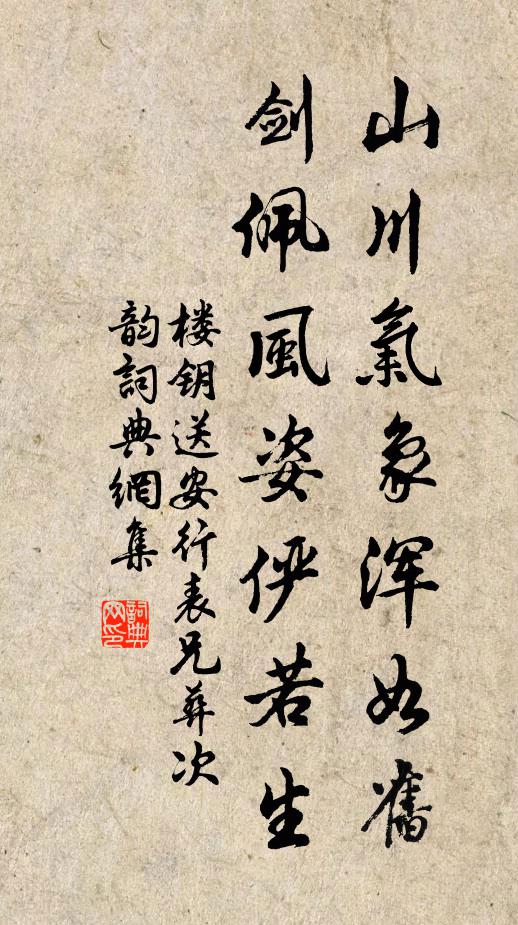 山川氣象浑如舊
剑佩風姿俨若生
楼钥送安行表兄葬次
韵詞典網集
詞典网印